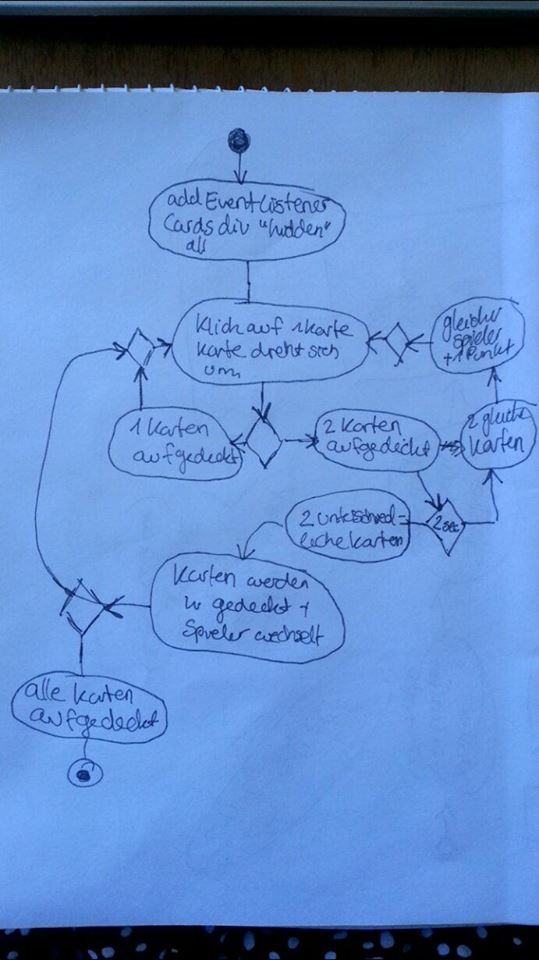 add EventListener
Cards div "hidden"
all
Klick auf 1 Karte
Karte dreht sich
um
gleicher
Spieler
+1 Punkt
1 Karten
aufgedeckt
2 Karten
aufgedeckt
2 gleiche
Karten
2 sec
2 unterschied-
liche Karten
Karten werden
gedeckt +
Spieler wechselt
alle Karten
aufgedeckt